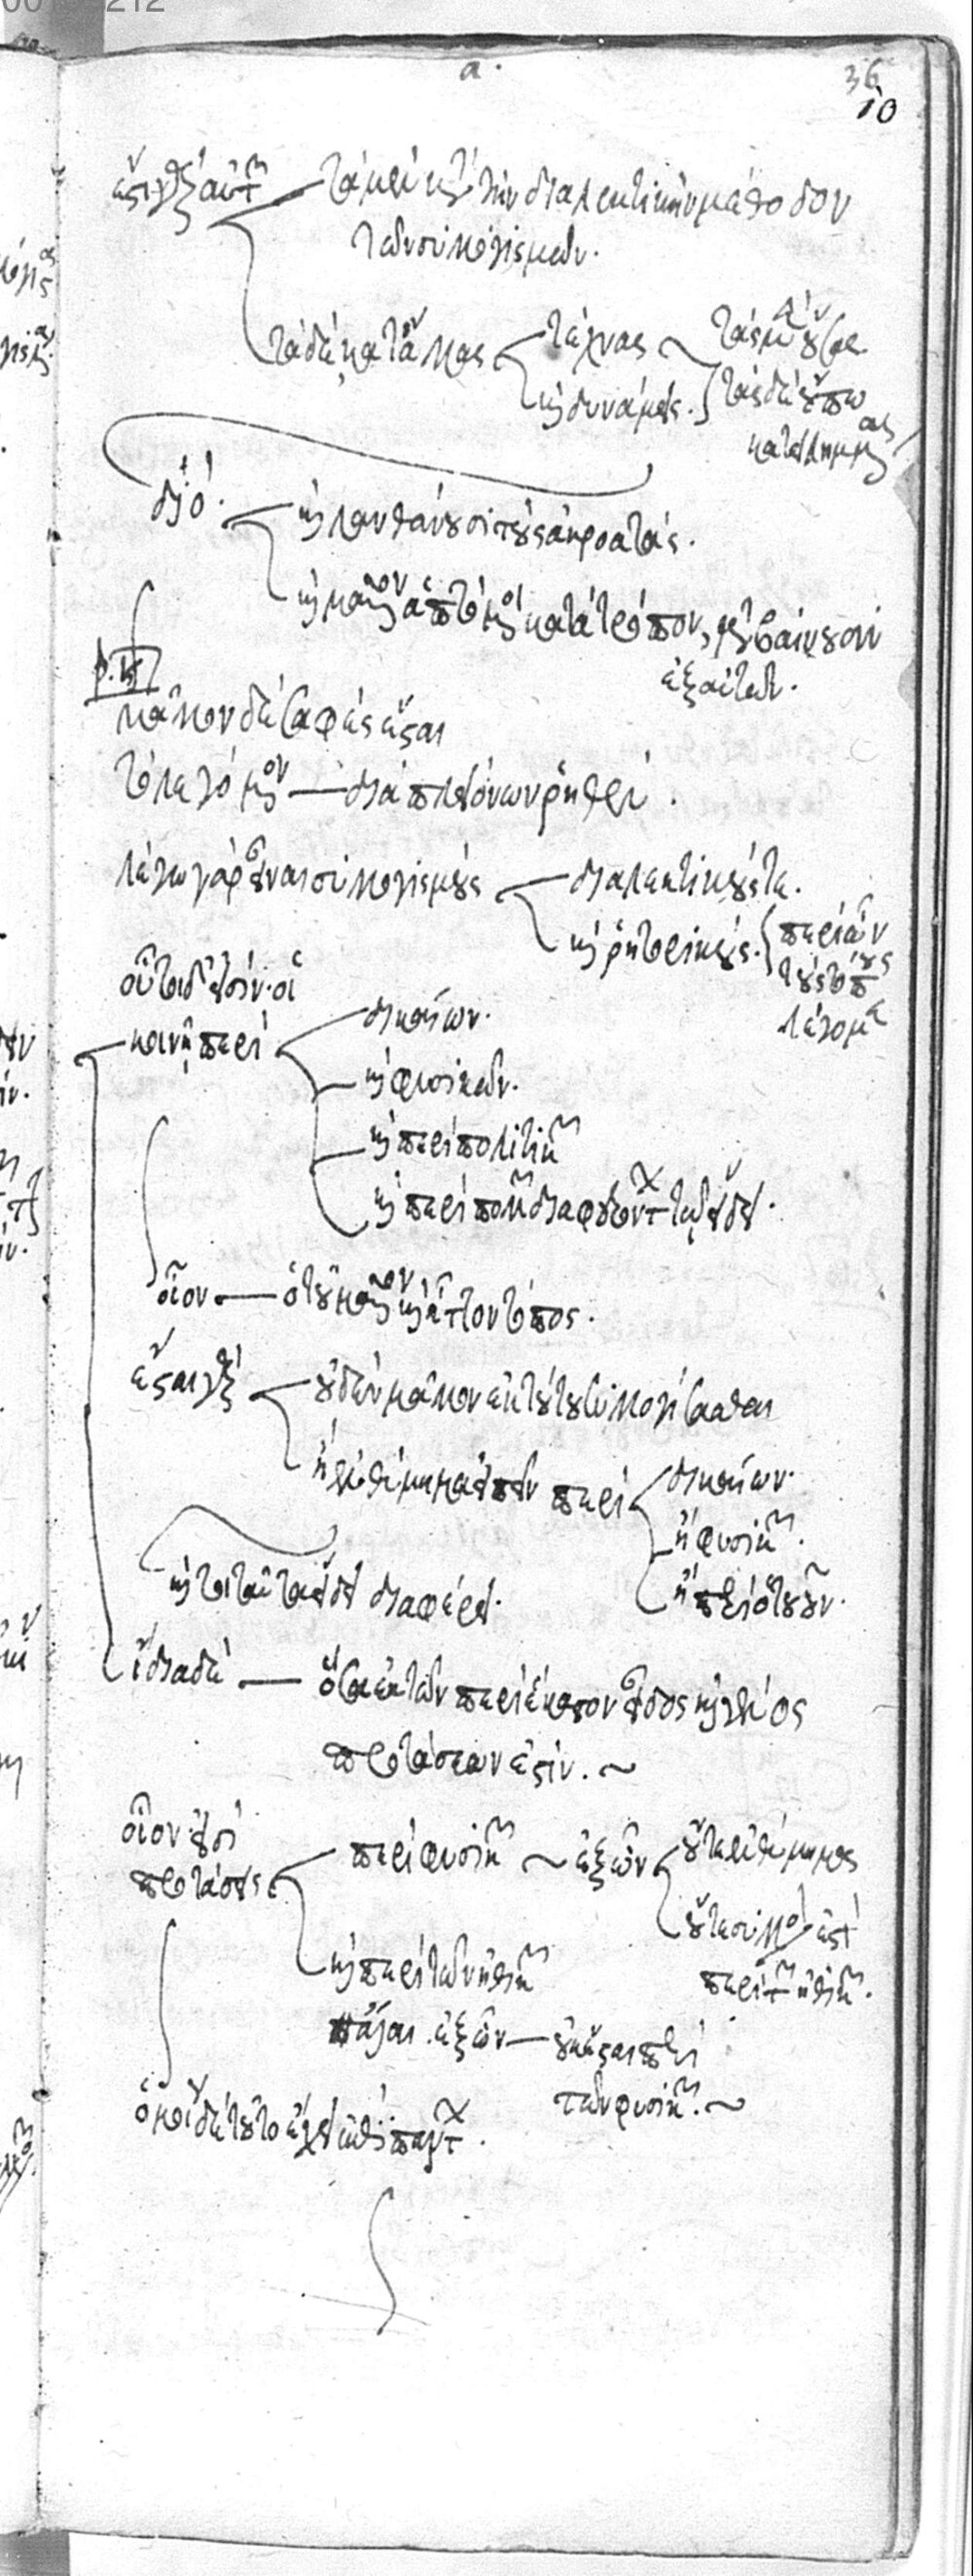 α.
36
10
ἔστι γὰρ αὐτῶν τὰ μὲν κατὰ τὴν διαλεκτικὴν μέθοδον
τῶν συλλογισμῶν.
τὰ δὲ κατ' ἄλλας τέχνας τὰς μὲν οὔσας
καὶ δυνάμεις. τὰς δ' οὔπω
κατειλημμένας
διό. καὶ λανθάνουσί τοὺς ἀκροατάς.
καὶ μᾶλλον ἁπτόμενοι κατὰ τρόπον, μεταβαίνουσιν
ἐξ αὐτῶν.
μᾶλλον δὲ σαφὲς ἔσται
τὸ λεγόμενον διὰ πλειόνων ῥηθέν.
λέγω γὰρ εἶναι συλλογισμοὺς διαλεκτικούς τε.
καὶ ῥητορικούς. περὶ ὧν
τοὺς τόπους
λέγομεν
οὗτοι δ' εἰσίν. οἱ
κοινῇ περὶ δικαίων.
καὶ φυσικῶν.
καὶ περὶ πολιτικῶν
καὶ περὶ πολλῶν διαφερόντων εἴδει.
οἷον ὁ τοῦ μᾶλλον καὶ ἧττον τόπος.
ἔσται γὰρ οὐδὲν μᾶλλον ἐκ τούτου συλλογίσασθαι
ἢ ἐνθύμημα εἰπεῖν περὶ δικαίων.
ἢ φυσικῶν.
ἢ περὶ ὁτουοῦν.
καίτοι ταῦτα εἴδει διαφέρει.
ἴδια δὲ ὅσα ἐκ τῶν περὶ ἕκαστον εἶδος καὶ γένος
προτάσεων ἐστίν.
οἷον εἰσὶ
προτάσεις περὶ φυσικῶν ἐξ ὧν οὔτε ἐνθύμημα
οὔτε συλλογισμὸς ἐστὶ
περὶ τῶν ἠθικῶν.
καὶ περὶ τῶν ἠθικῶν
ἄλλαι. ἐξ ὧν οὐκ ἔσται περὶ
τῶν φυσικῶν.
ὁμοίως δὲ τοῦτο ἔχει ἐπὶ πάντων.